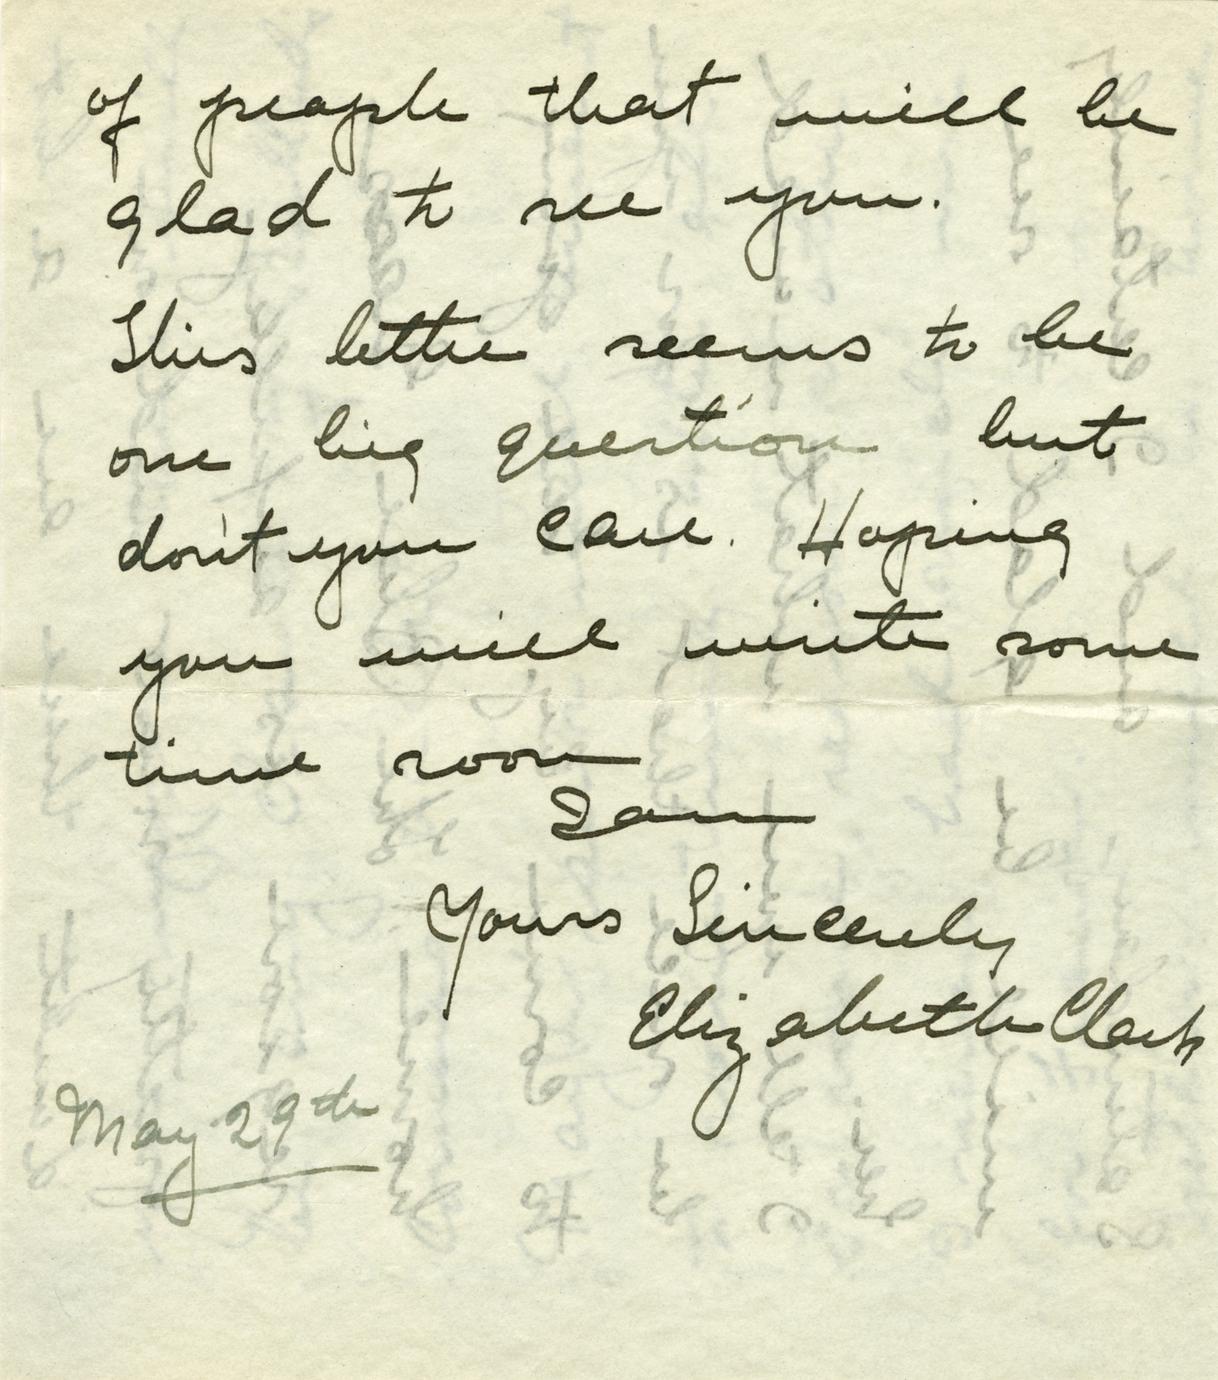 of people that will be
glad to see you.
This letter seems to be
one big question but
don't you care. Hoping
you will write some
time soon
I am
Yours Sincerely
Elizabeth Clark
May 29th